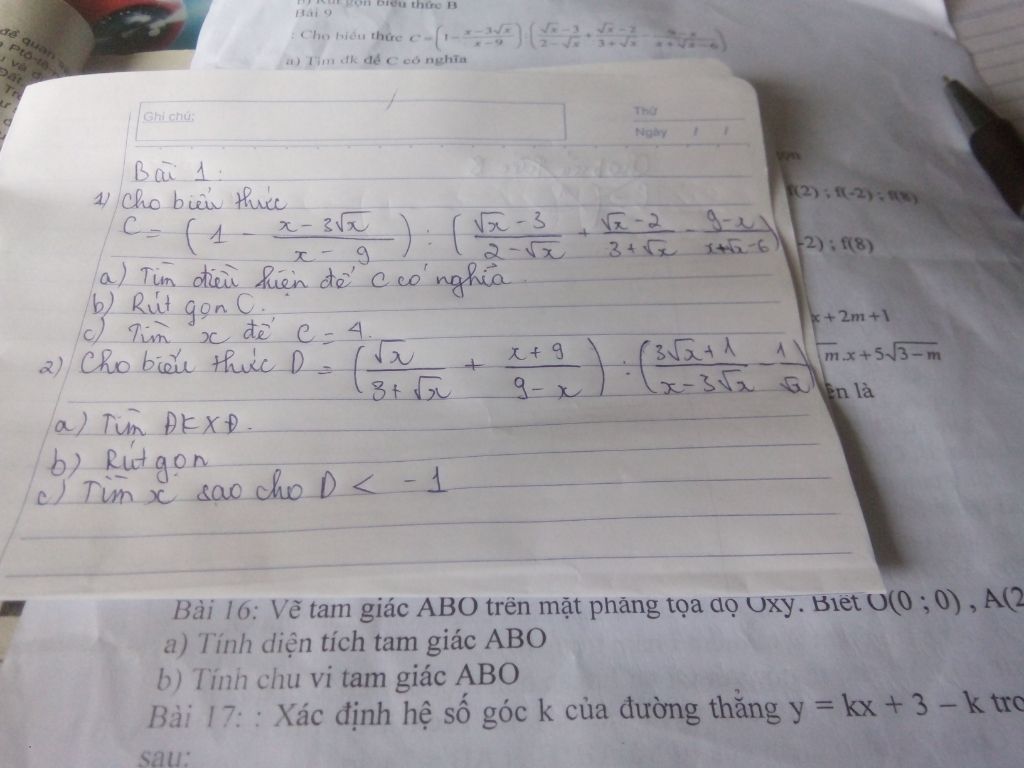 b) Rút gọn biểu thức B
Bài 9
: Cho biểu thức C = (1 - (x-3√x)/(x-9)) : ((√x-3)/(2-√x) + (√x-2)/(3+√x) - (9-x)/(x+√x-6))
a) Tìm đk để C có nghĩa
Ghi chú:
Thứ
Ngày / /
Bài 1:
1) Cho biểu thức
C = (1 - (x-3√x)/(x-9)) : ((√x-3)/(2-√x) + (√x-2)/(3+√x) - (9-x)/(x+√x-6))
a) Tìm điều kiện để C có nghĩa.
b) Rút gọn C.
c) Tìm x để C = 4.
2) Cho biểu thức D = (√x/(3+√x) + (x+9)/(9-x)) : ((3√x+1)/(x-3√x) - 1/√x)
a) Tìm ĐKXĐ.
b) Rút gọn
c) Tìm x sao cho D < -1
f(2) ; f(-2) ; f(8)
-2) ; f(8)
x + 2m + 1
m.x + 5√(3-m)
ên là
Bài 16: Vẽ tam giác ABO trên mặt phẳng tọa độ Oxy. Biết O(0 ; 0) , A(2
a) Tính diện tích tam giác ABO
b) Tính chu vi tam giác ABO
Bài 17: : Xác định hệ số góc k của đường thẳng y = kx + 3 – k tro
sau: